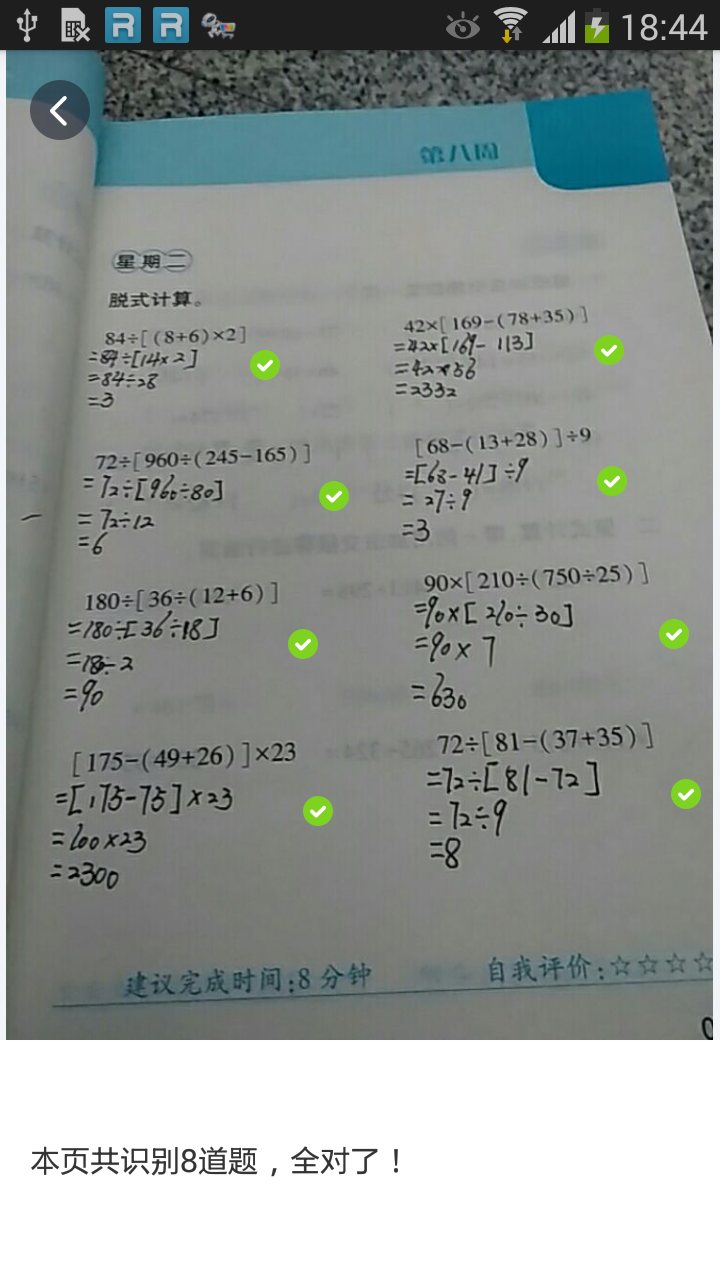 18:44
第八周
星期二
脱式计算。
84÷[(8+6)×2]
=84÷[14×2]
=84÷28
=3
42×[169-(78+35)]
=42×[169-113]
=42×56
=2352
72÷[960÷(245-165)]
=72÷[960÷80]
=72÷12
=6
[68-(13+28)]÷9
=[68-41]÷9
=27÷9
=3
180÷[36÷(12+6)]
=180÷[36÷18]
=180÷2
=90
90×[210÷(750÷25)]
=90×[210÷30]
=90×7
=630
[175-(49+26)]×23
=[175-75]×23
=100×23
=2300
72÷[81-(37+35)]
=72÷[81-72]
=72÷9
=8
建议完成时间:8分钟
自我评价:☆☆☆☆
本页共识别8道题，全对了！